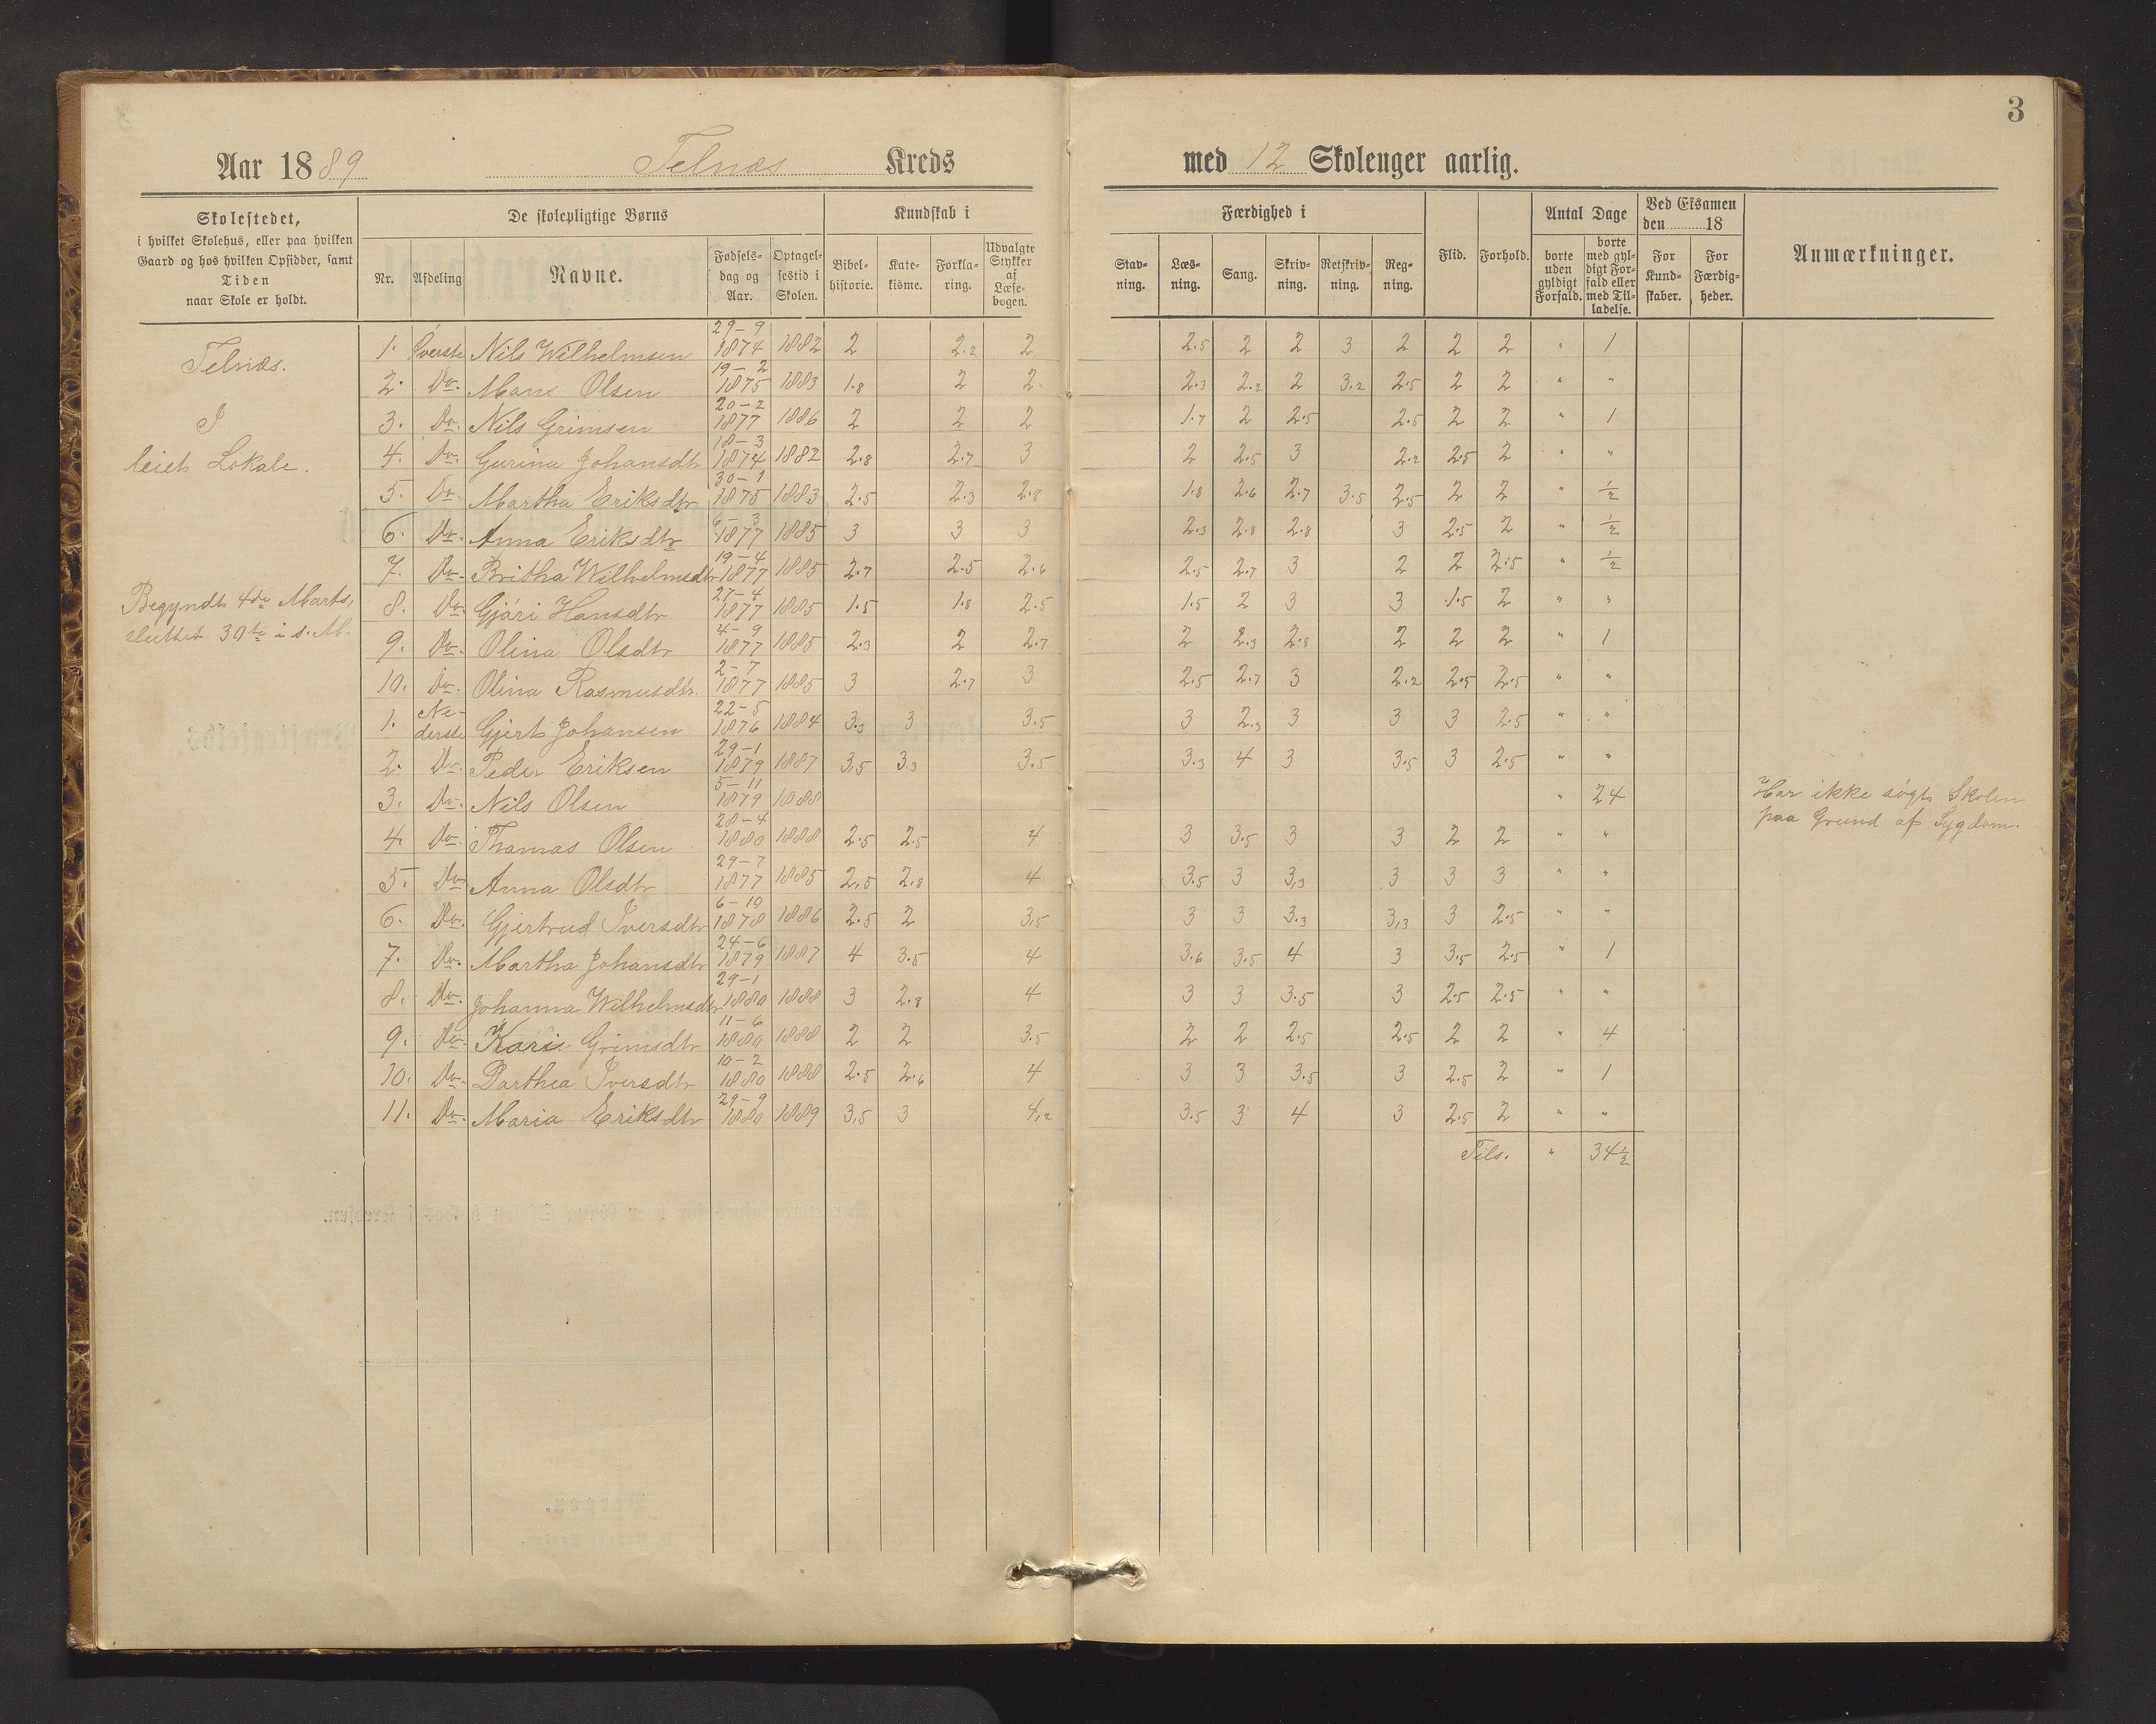 3
Aar 1889 Telnæs Kreds med 12 Skoleuger aarlig.
Skolestedet,
i hvilket Skolehus, eller paa hvilken
Gaard og hos hvilken Opsidder, samt
Tiden
naar Skole er holdt.
De skolepligtige Børns
Nr. Afdeling Navne. Fødselsdag og Aar. Optagelsestid i Skolen.
Kundskab i
Bibelhistorie. Katekisme. Forklaring. Udvalgte Stykker af Læsebogen.
Færdighed i
Stavning. Læsning. Sang. Skrivning. Retskrivning. Regning.
Flid. Forhold.
Antal Dage
borte uden gyldigt Forfald. borte med gyldigt Forfald eller med Tilladelse.
Ved Eksamen
den 18
For Kundskaber. For Færdigheder.
Anmærkninger.
Telnæs.
I
leiet Lokale.
Begyndt 4de Marts,
sluttet 30te i s. M.
1. Øverste Nils Wilhelmsen 29-9 1874 1882 2 2.2 2 2.5 2 2 3 2 2 2 " 1
2. Do. Mons Olsen 19-2 1875 1883 1.8 2 2. 2.3 2.2 2 3,2 2.5 2 2 " "
3. Do. Nils Grimsen 20-2 1877 1886 2 2 2 1.7 2 2.5 2.5 2 2 " 1
4. Do. Gurina Johansdtr 18-3 1874 1882 2.8 2.7 3 2 2.5 3 2.2 2.5 2 " "
5. Do. Martha Eriksdtr 30-1 1875 1883 2.5 2.3 2.8 1.8 2.6 2.7 3.5 2.5 2 2 " ½
6. Do. Anna Eriksdtr 6-3 1877 1885 3 3 3 2.3 2.8 2.8 3 2.5 2 " ½
7. Do. Britha Wilhelmsdtr 19-4 1877 1885 2.7 2.5 2.6 2.5 2.7 3 2 2 2.5 " ½
8. Do. Gjøri Hansdtr 27-4 1877 1885 1.5 1.8 2.5 1.5 2 3 3 1.5 2 " "
9. Do. Olina Olsdtr 4-9 1877 1885 2.3 2 2.7 2 2.3 2.8 2 2 2 " 1
10. Do. Olina Rasmusdtr. 2-7 1877 1885 3 2.7 3 2.5 2.7 3 2.2 2.5 2.5 " "
1. Nederste Gjert Johansen 22-5 1876 1884 3.3 3 3.5 3 2.3 3 3 3 2.5 " "
2. Do. Peder Eriksen 29-1 1879 1887 3,5 3.3 3.5 3.3 4 3 3.5 3 2.5 " "
3. Do. Nils Olsen 5-11 1879 1888 " 24 Har ikke søgt Skolen
paa Grund af Sygdom.
4. Do. Thomas Olsen 28-4 1880 1888 2.5 2.5 4 3 3.5 3 3 2 2 " "
5. Do. Anna Olsdtr 29-7 1877 1885 2,5 2,8 4 3.5 3 3,3 3 3 3 " "
6. Do. Gjertrud Iversdtr 6-10 1878 1886 2.5 2 3,5 3 3 3.3 3,3 3 2.5 " "
7. Do. Martha Johansdtr 24-6 1879 1887 4 3.5 4 3.6 3.5 4 3 3,5 2.5 " 1
8. Do. Johanna Wilhelmsdtr 29-1 1880 1888 3 2.8 4 3 3 3.5 3 2.5 2.5 " "
9. Do. Kari Grimsdtr 11-6 1880 1888 2 2 3.5 2 2 2.5 2.5 2 2 " 4
10. Do. Dorthea Iversdtr 10-2 1880 1888 2.5 2.6 4 3 3 3.5 3 2.5 2 " 1
11. Do. Maria Eriksdtr 29-9 1880 1889 3,5 3 4,2 3.5 3 4 3 2.5 2 " "
Tils. " 34½